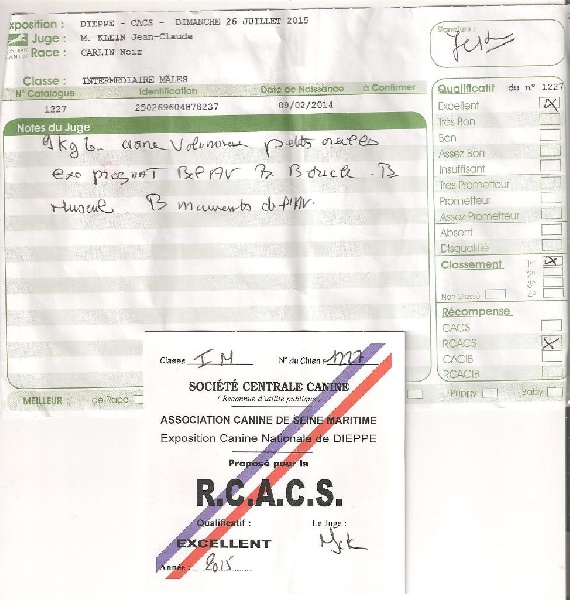 xposition : DIEPPE - CACS - DIMANCHE 26 JUILLET 2015
Juge : M. KLEIN Jean-Claude
Race : CARLIN Noir
Signature :
Classe : INTERMEDIAIRE MALES
N° Catalogue Identification Date de Naissance à Confirmer
1227 250269604878237 09/02/2014
Notes du Juge
9kg6 crane Volumineux petites oreilles
exo pregnat
Muscle B mouvements de l'AV
Qualificatif du n° 1227
Excellent X
Très Bon
Bon
Assez Bon
Insuffisant
Très Prometteur
Prometteur
Assez Prometteur
Absent
Disqualifié
Classement 1er X
Non Classé
Récompense
CACS
RCACS X
CACIB
RCACIB
MEILLEUR : de Race Puppy Baby
Classe I M N° du Chien 1227
SOCIÉTÉ CENTRALE CANINE
(Reconnue d'utilité publique)
ASSOCIATION CANINE DE SEINE MARITIME
Exposition Canine Nationale de DIEPPE
Proposé pour la
R.C.A.C.S.
Qualificatif : Le Juge :
EXCELLENT
Année : 2015